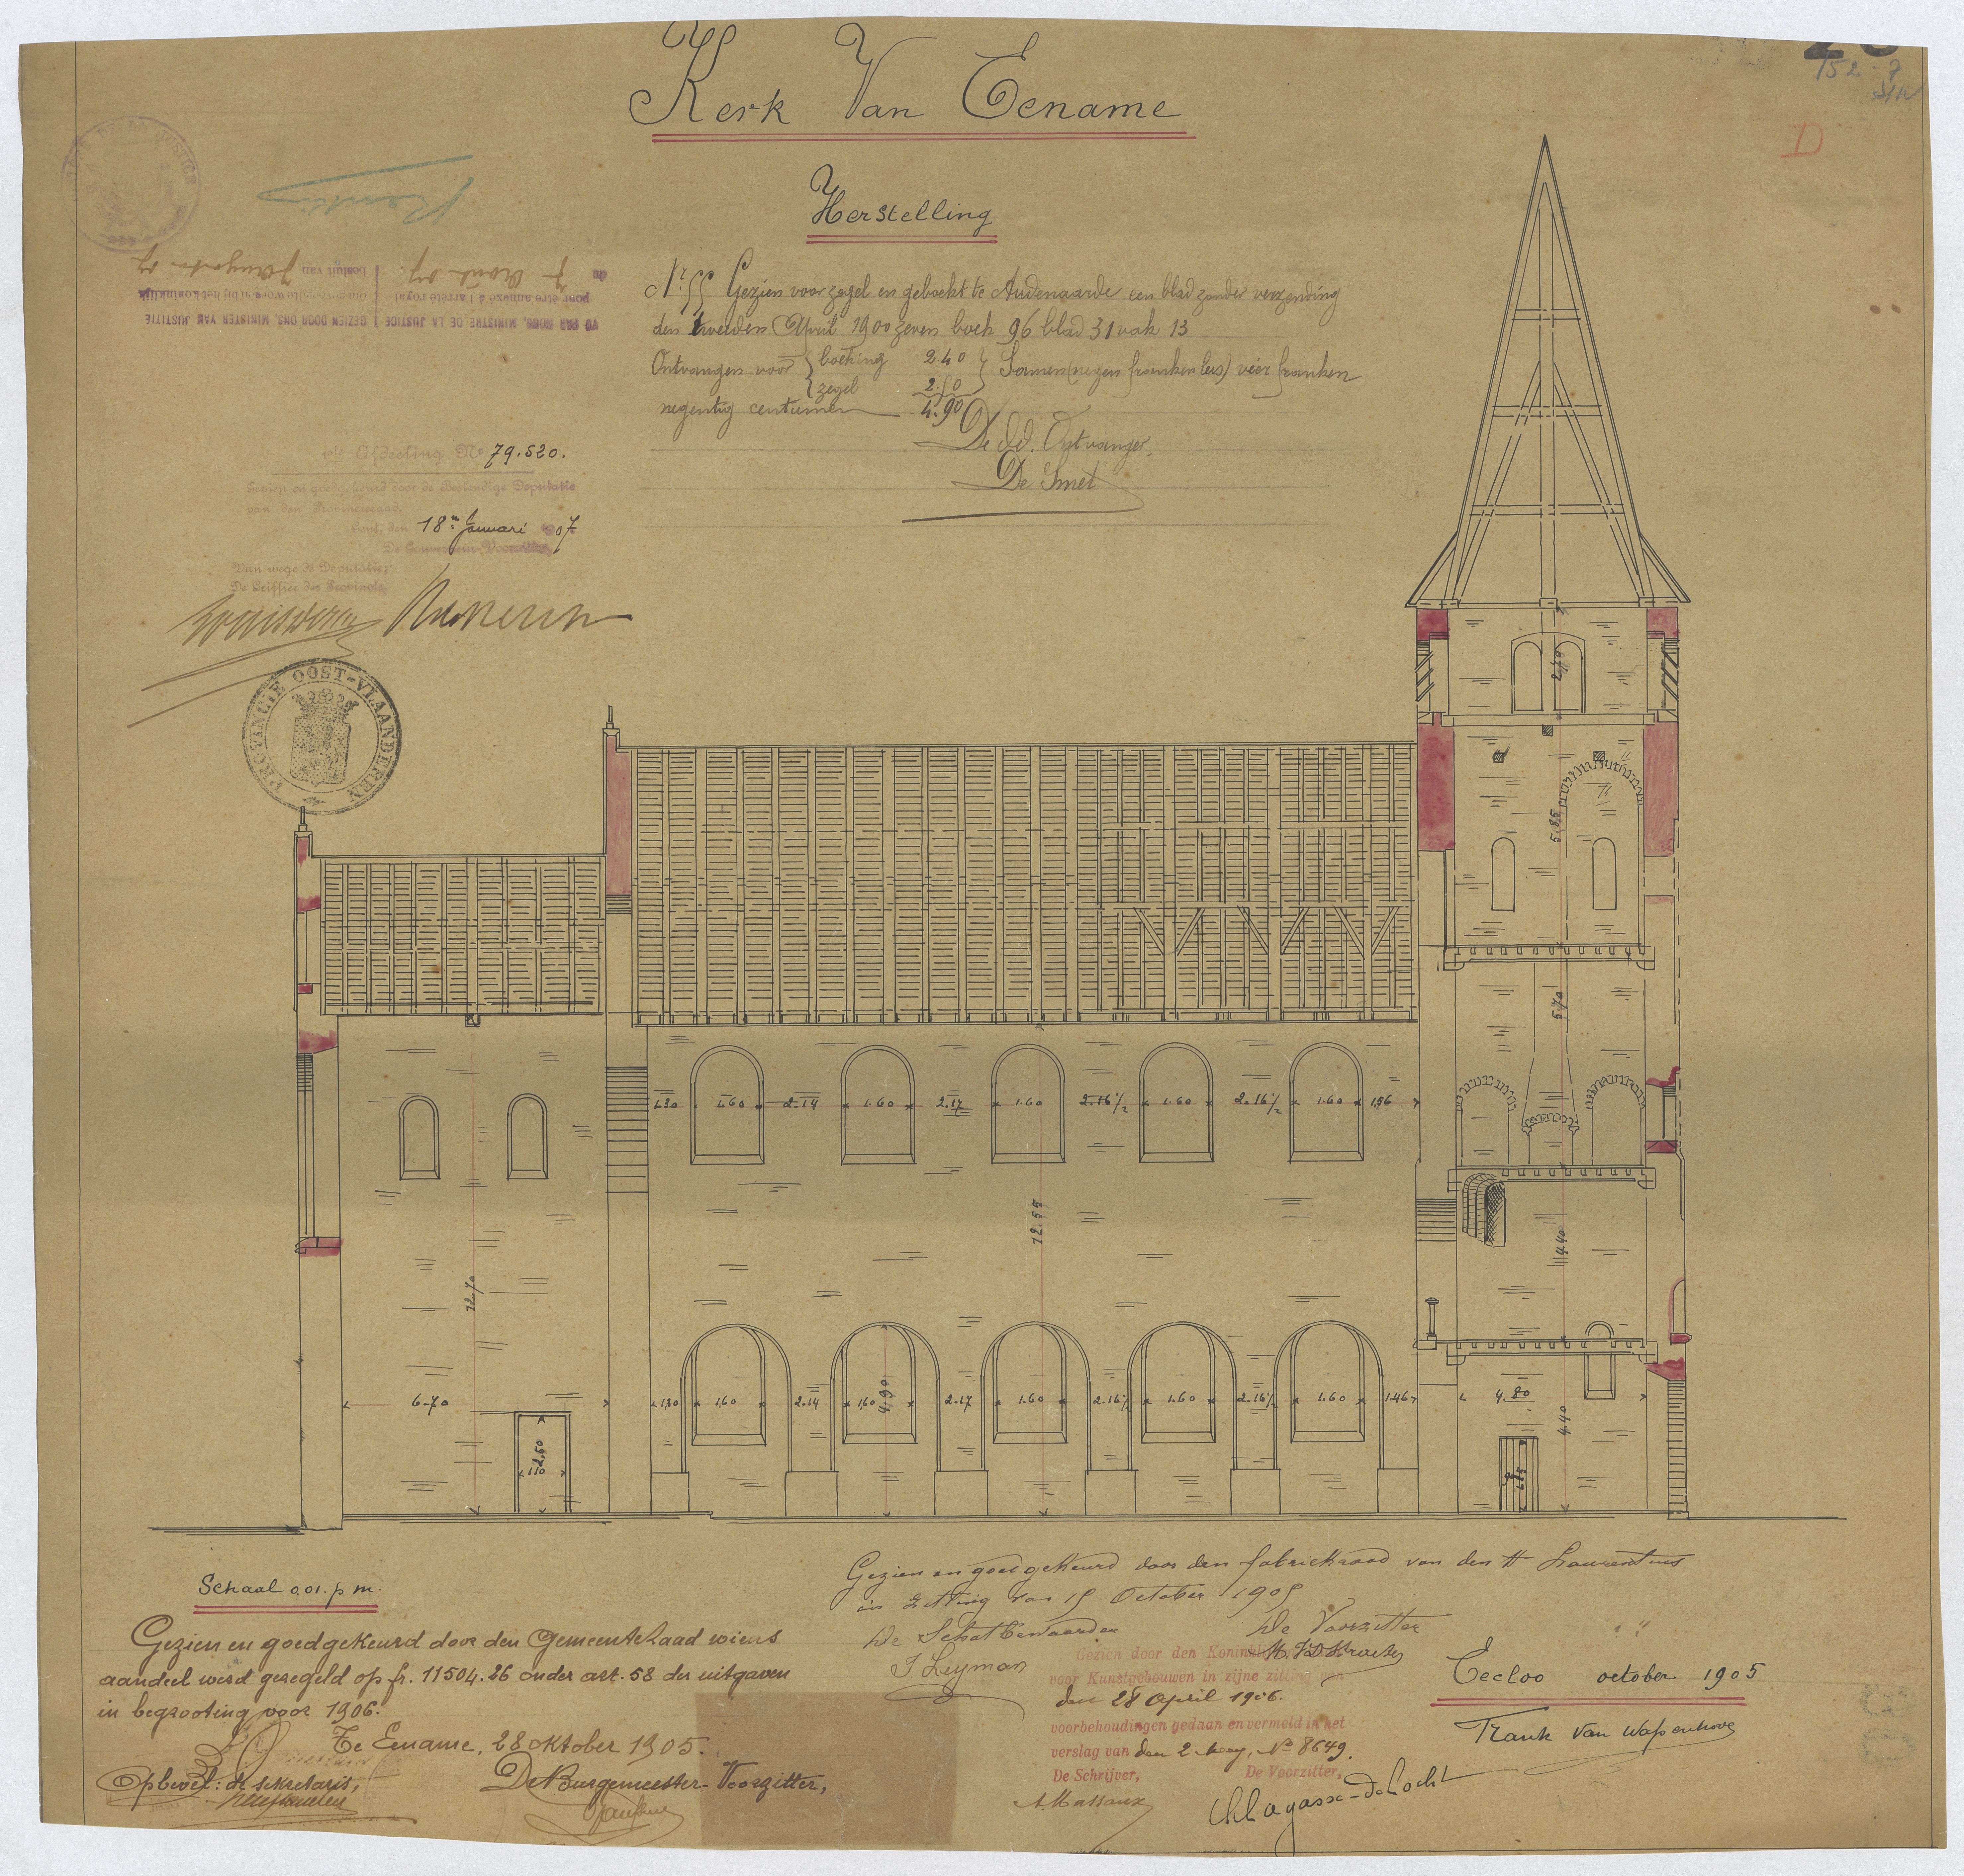 Kerk Van Eename
152-7
D
Herstelling
Gezien voor zegel en geboekt te Audenaarde een blad zonder verzending
den tweeden April 1900 zeven boek 96 blad 31 vak 13
Ontvangen voor boeking 2.40 Samen vier franken
zegel 2.50
negentig centiemen 4.90
De Ontvanger,
De Smet
VU PAR NOUS, MINISTRE DE LA JUSTICE
pour être annexé à l'arrêté royal
du 7 Août 07.
GEZIEN DOOR ONS, MINISTER VAN JUSTITIE
om gevoegd te worden bij het koninklijk
besluit van 7 Augustus 07
1ste Afdeeling No 79.520.
Gezien en goedgekeurd door de Bestendige Deputatie
van den Provincieraad.
Gent, den 18n Januari 1907
De Gouverneur-Voorzitter,
Van wege de Deputatie:
De Griffier der Provincie,
PROVINCIE OOST-VLAANDEREN
2.70
5.85
5.70
1.30 1.60 2.14 1.60 2.17 1.60 2.16½ 1.60 2.16½ 1.60 1.56
12.55
4.40
12.70
6.70
1.30 1.60 2.14 1.60 4.90 2.17 1.60 2.16½ 1.60 2.16½ 1.60 1.46
4.80
4.40
2.50
1.10
Schaal 0,01. p m.
Gezien en goedgekeurd door den Gemeenteraad wiens
aandeel werd geregeld op fr. 11504.26 onder art. 58 der uitgaven
in begrooting voor 1906.
Te Eename, 28 oktober 1905.
Op bevel: de sekretaris,
De Burgemeester-Voorzitter,
Gezien en goedgekeurd door den fabriekraad van den H Laurentius
in zitting van 15 October 1905
De Schatbewaarder
De Voorzitter
J. Leyman
Gezien door den
voor Kunstgebouwen in zijne zitting van
den 28 April 1906.
voorbehoudingen gedaan en vermeld in het
verslag van den 2 Mey, No 8649.
De Schrijver, De Voorzitter,
A. Massaux
Ch Lagasse-de Locht
Eecloo october 1905
Frank Van Wassenhove